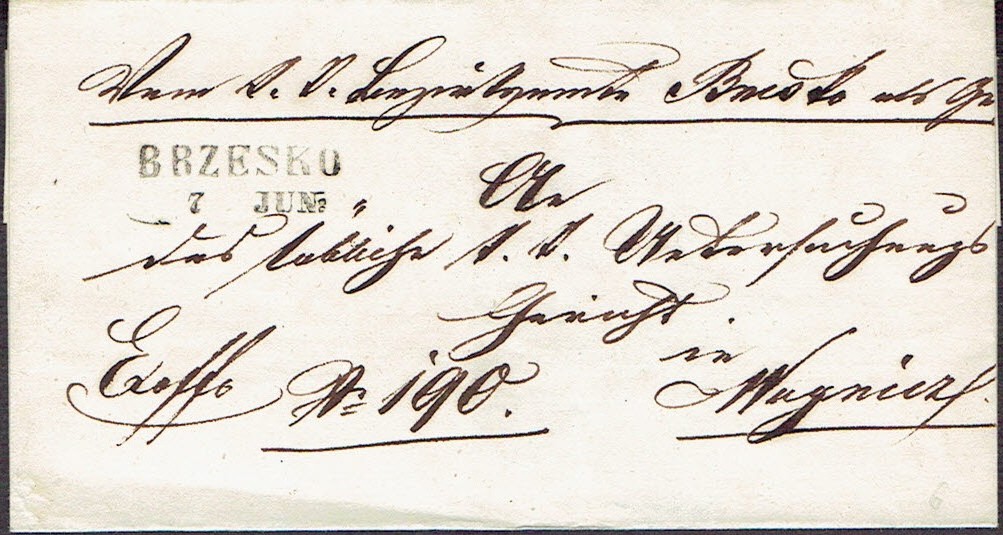 Vom k. k. Bezirksamte Brzesko als Ge
BRZESKO
7 JUN:
An
das löbliche k. k. Untersuchungs
Gericht
in
Exoffo № 190.